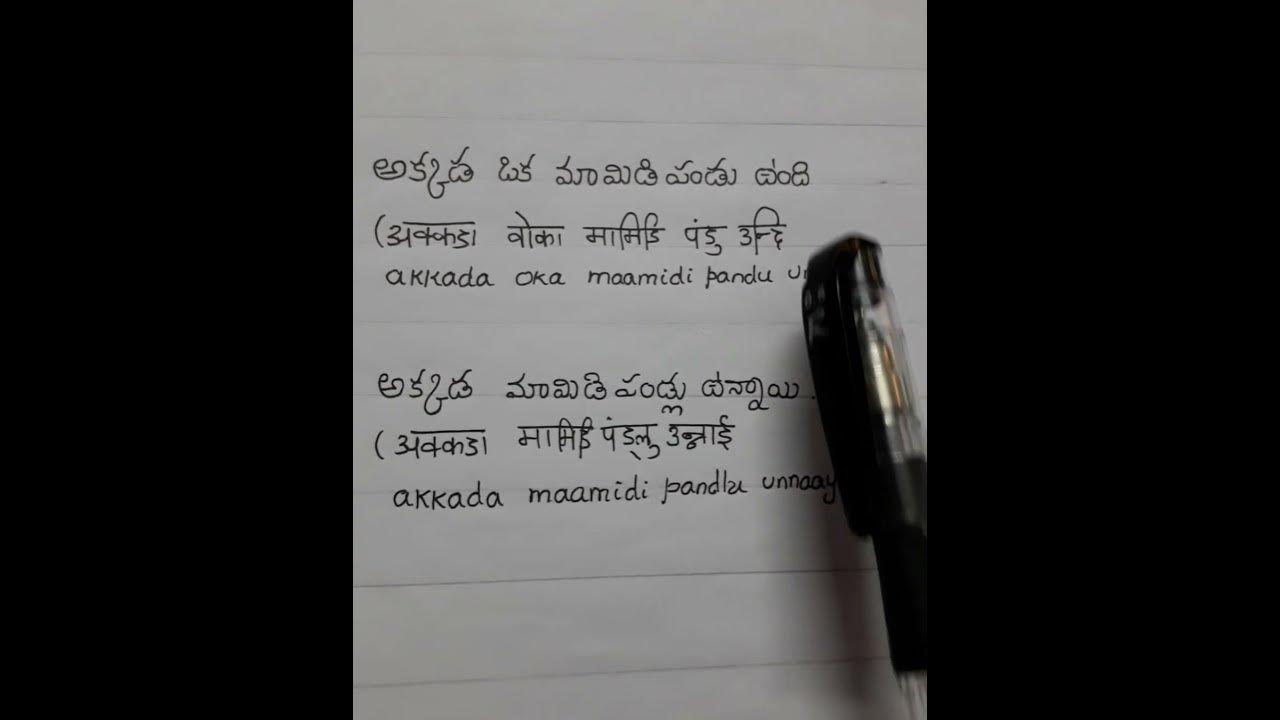 అక్కడ ఒక మామిడి పండు ఉంది
(अक्कडा वोका मामिडि पंडु उन्दि
akkada oka maamidi pandu
అక్కడ మామిడి పండ్లు ఉన్నాయి.
(अक्कडा मामिडि पंड्लु उन्नाई
akkada maamidi pandlu unnaay